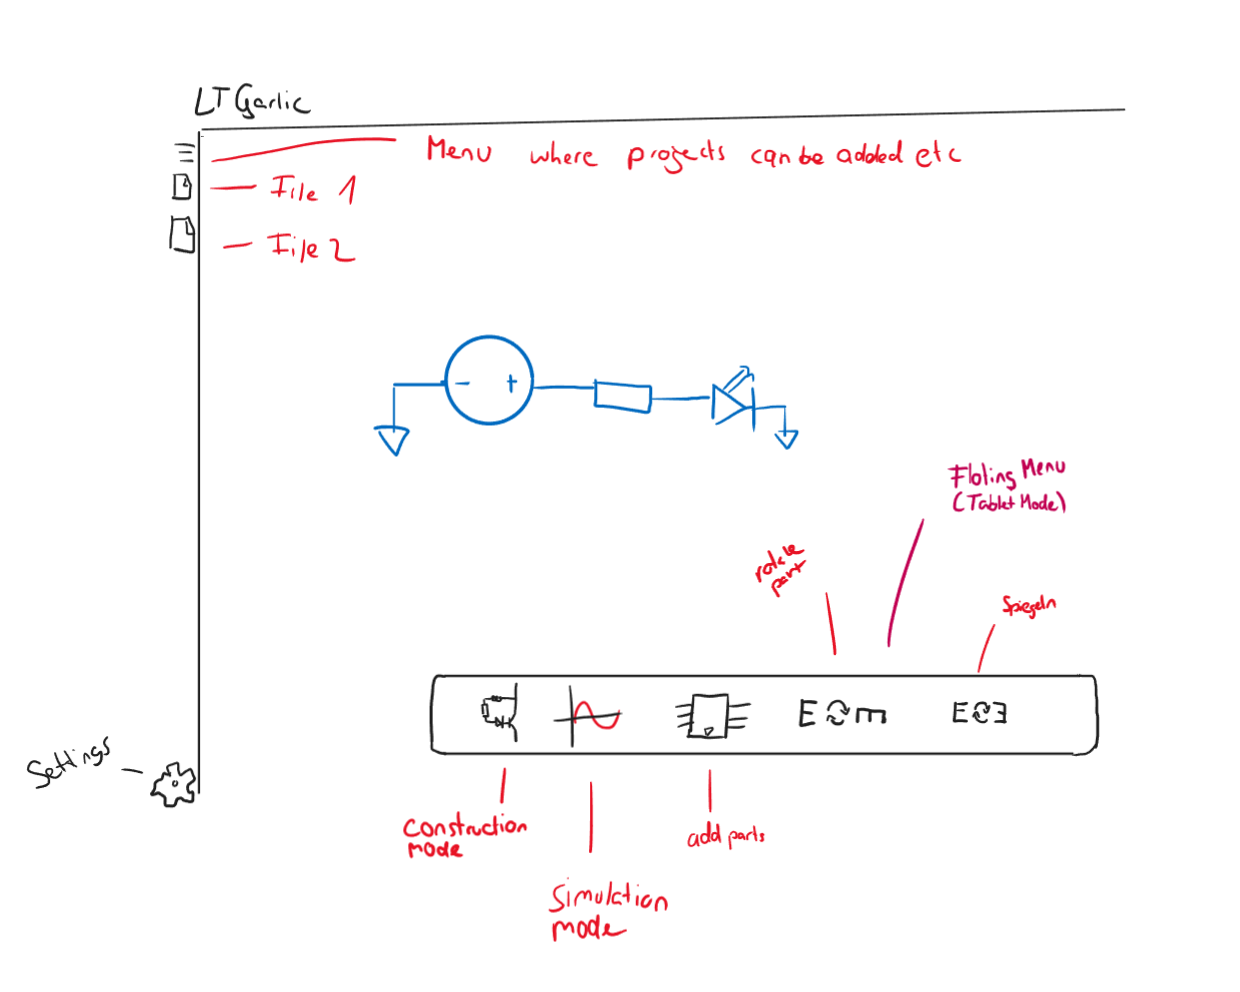 LTGarlic
Menu where projects can be added etc
File 1
File 2
- +
Floting Menu
(Tablet Mode)
rotate
part
Spiegeln
E m
E 3
Settings
construction
mode
add parts
Simulation
mode